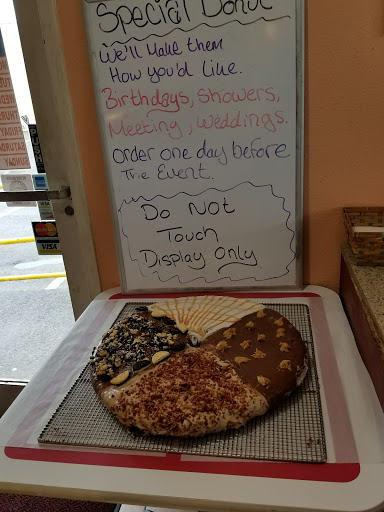 Special Donut
We'll Make them
How you'd Like.
Birthdays, Showers,
Meeting, Weddings.
Order one day before
The Event.
Do Not
Touch
Display Only
PUSH
VISA
SUNDAY